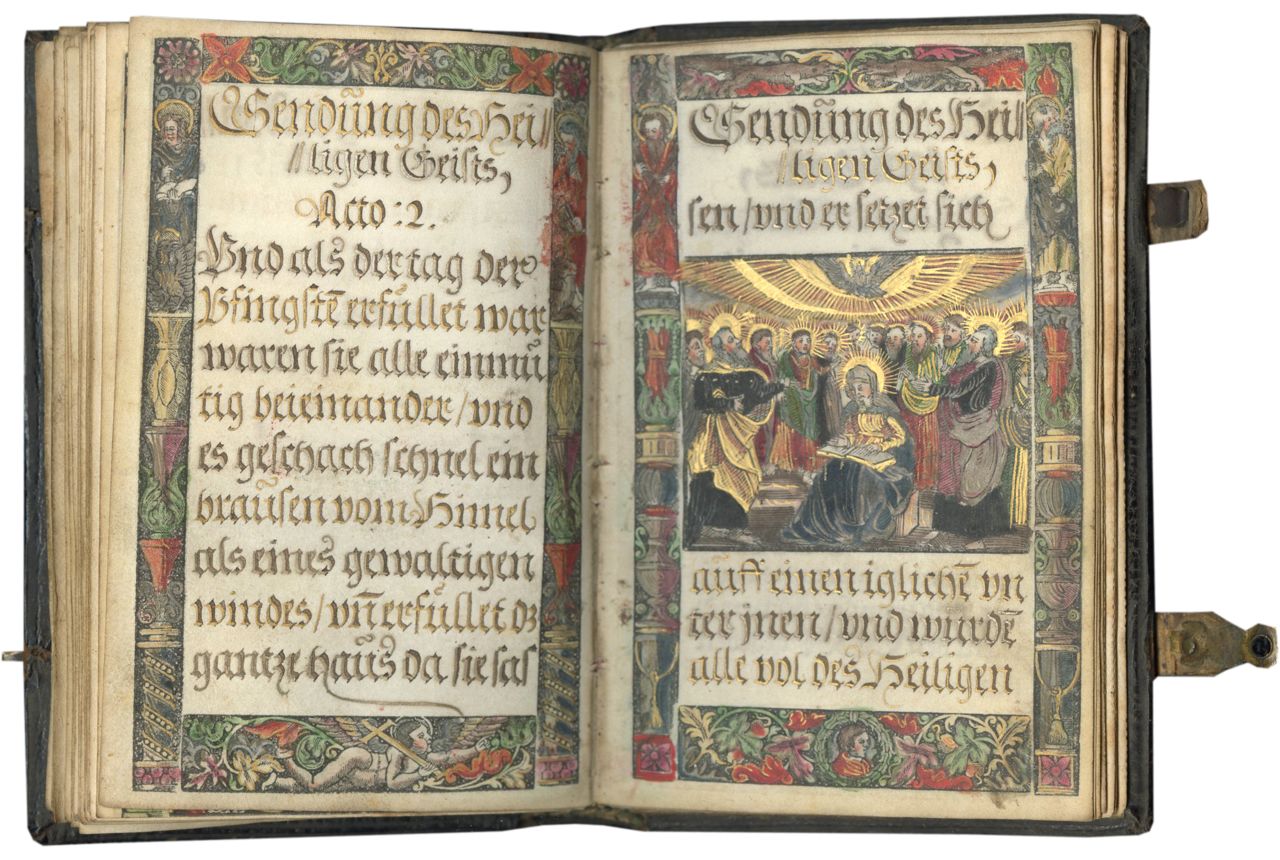 Sendũng des Hei⸗
⸗ligen Geists,
Acto :2.
Vnd als der tag der
Pfingstẽ erfüllet war
waren sie alle einmü
tig beieinander/vnd
es geschach schnel ein
braũsen vom Himel
als eines gewaltigen
windes/vñ erfüllet dz
gantze haũs da sie sas
Sendũng des Hei⸗
⸗ligen Geists,
sen/vnd er setzet sich
aũff einen iglichẽ vn
ter jnen/vnd wurdẽ
alle vol des Heiligen